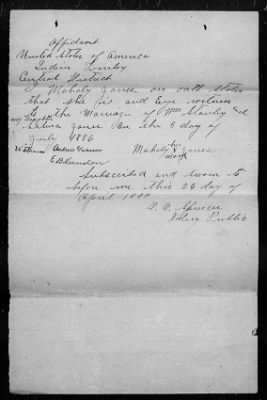 Affidavit
United States of America
Indian
Central District
I Mahaly Jones on oath states
that she is and Eye witness
to the Marriage of Wm Stanley and
Jones on the 5 day of
July 1886
Witness
Mahaly her x mark Jones
E B
Subscribed and sworn to
before me this 26 day of
April 1899
Spencer
Notary Public